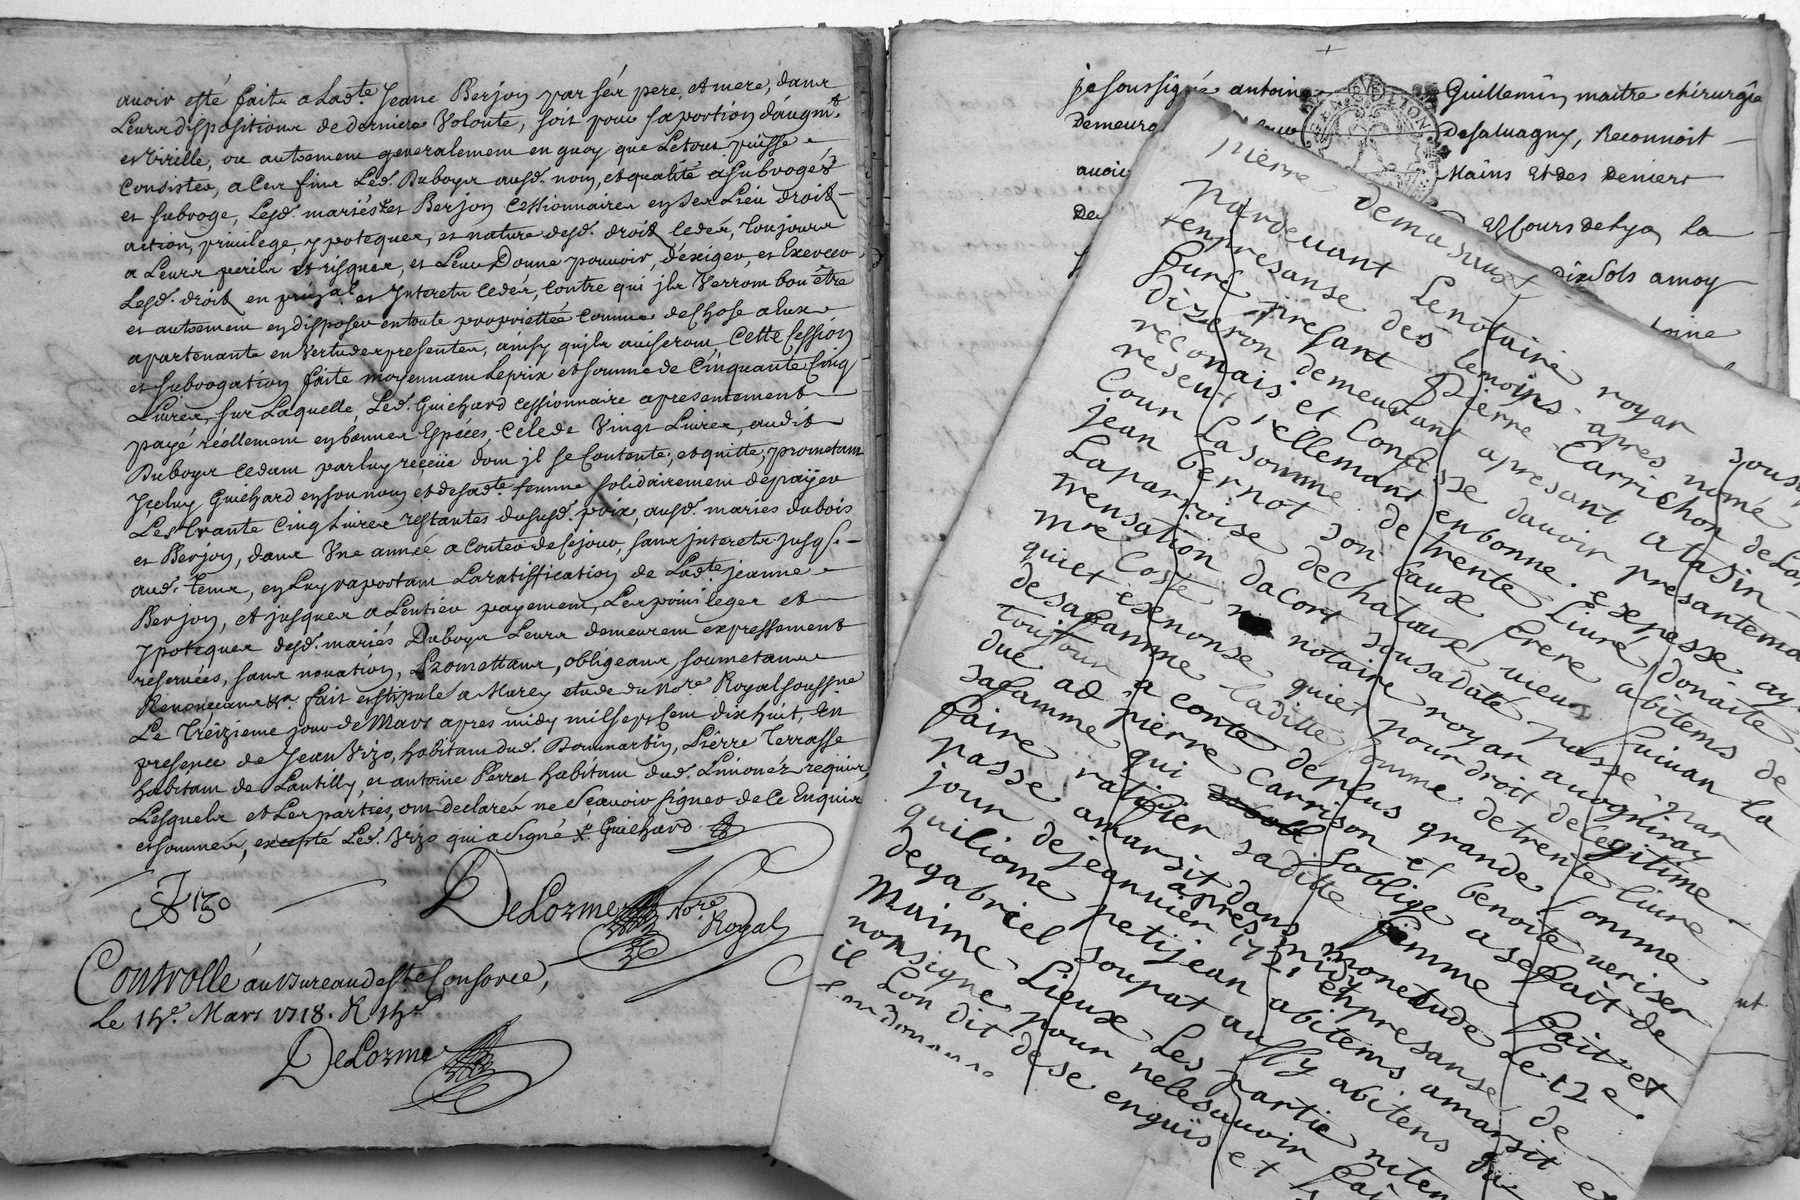 avoir esté faite a Lad.te Jeane Berjon par ses pere, et mere, dans
Leurs dispositions de derniere Volonté, soit pour sa portion d'augm.t
et Virille, ou autrement generalement en quoy que Le tout puisse
Consister, a Ces fins Led. Duboys ausd. nom, et qualité a subrogé
et subroge, Lesd. mariés et Berjon Cessionnaires en Ses Lieu droit
action, privilege, ypoteques, et nature desd. droit Cedés, toujours
a Leurs perils et risques, et Leur Donne pouvoir, d'exiger, et Exercer
Lesd. droit en prigal et Interets Cedés, Contre qui jls Verront bon être
et autrement en disposer en toute proprietté Comme de Chose a Eux
apartenante en Vertu des presentes, ainsy qujls aviseront Cette Cession
et subrogation faite moyennant Le prix et somme de Cinquante Cinq
Livres, sur Laquelle, Led. Guichard cessionnaire a presentement
payé réellement en bonnes Especes, Cele de Vingt Livres, audit
Duboys cedant par luy reçeüe dont jl se Contente, et quitte, prometant
Jceluy Guichard en son nom et de sad.te femme solidairement de payer
Les trante Cinq Livres restantes dususd. prix, ausd. mariés dubois
et Berjon, dans Vne année a Conter de Cejour, sans jnterets jusq.
aud. tems, en Luy raportant La ratiffication de Lad.te jeanne
Berjon, et jusques a Lentier payement, Les privileges et
ypoteques desd. mariés Duboys Leurs demeurent expressement
reservées, sans novation, Promettans, obligeans, soumetans
Renonceans &a fait et stipulé a Marcy etude du No.re Royal soussné
Le Treizieme jour de Mars apres midy mil sept Cent dix huit, En
presence de Jean Vzo, habitant dud. Dommartin, Pierre Terrasse
habitant de Lantilly, et antoine Perret habitant dud. Limonés requis,
Lesquels et Les parties, ont declarés ne Sçavoir signer de Ce Enquis
et sommés, excepté Led. Vzo qui a signé & Guichard
DeLorme No.re Royal
Controllé au Bureau de St.e Consorce,
Le 15e. Mars 1718. R
DeLorme
je soussigné antoine Guillemin maitre chirurgie
Demeura de salvagny, Reconnoit
avoir Mains Et des Deniers
De Cours de Lyon La
dix sols a moy
toine
pierre demasaux
pardevant Lenotaire royar sousi
tenpresanse des temoins apres nomé
fure presant Pierre Carrichon de La
dizeron demeurant apresant atasin
reconais et Confesse davoir presantema
reseu rellemant enbonne. espesse ay
Cour La somme de trente Livre donaite
jean bernot son baux frere abitens de
Laparroise dechalaise vieux suivan la
trensation dacort sousadate passe par
mre Coste notaire royar avogniray
quiet exenonse quiet pour droit delegitime
desafamme laditte somme detrente livre
toujour a conte deplus grande somme
due ad pierre Carrison et benoite veriser
safamme qui soblige asefait de
faire ratifier saditte fimme fait et
passe amarsit dans monetude Le 12 e.
jour dejeanvier apres midy enpresanse de
quiliome petijean abitens amarsit e
degabriel soupat aussy abitens du
Maime Lieux Les partie niten
nonsigne pour nelesavoir fai
il Lon dit dese enquis et s